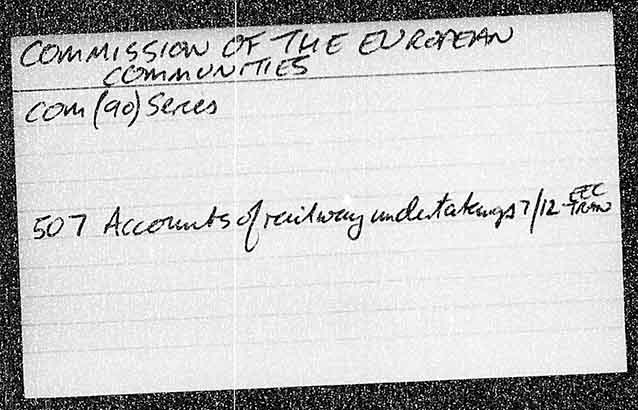 COMMISSION OF THE EUROPEAN
COMMUNITIES
COM (90) Series
507 Accounts of railway undertakings 7/12 EEC
TRAN